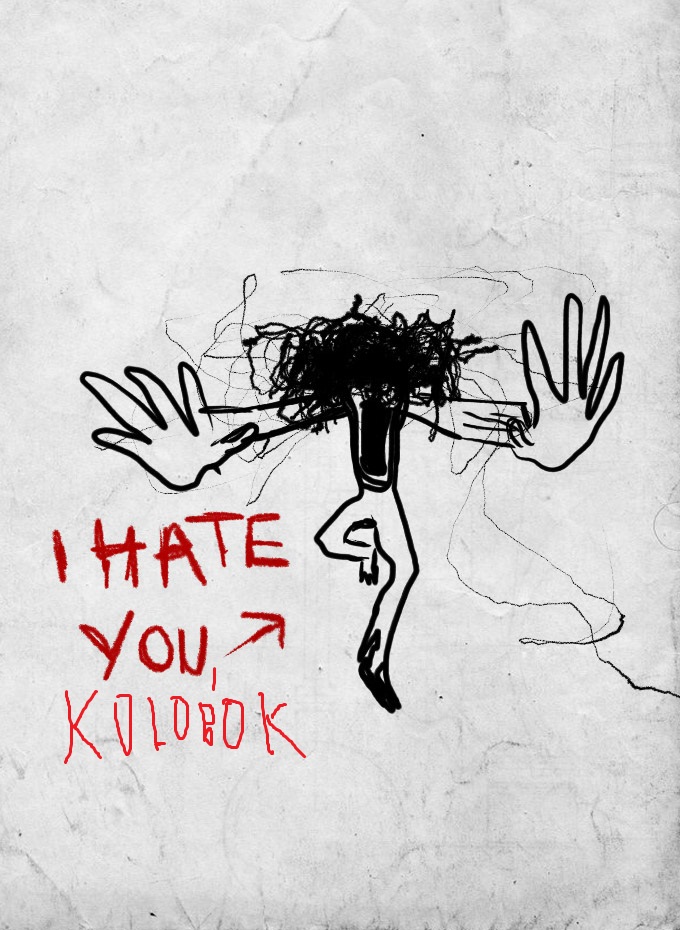 I HATE
YOU,
KOLOBOK